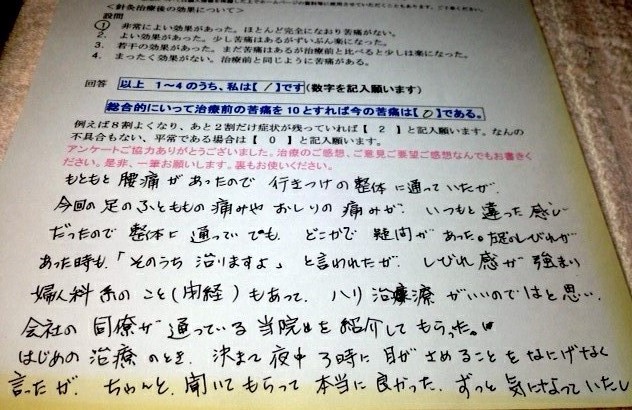 <針灸治療後の効果について>
設問
1. 非常によい効果があった。ほとんど完全になおり苦痛がない。
2. よい効果があった。少し苦痛はあるがずいぶん楽になった。
3. 若干の効果があった。まだ苦痛はあるが治療前と比べると少しは楽になった。
4. まったく効果がない。治療前と同じように苦痛がある。
回答 以上 1~4のうち、私は【 1 】です(数字を記入願います)
総合的にいって治療前の苦痛を10とすれば今の苦痛は【 0 】である。
例えば8割よくなり、あと2割だけ症状が残っていれば【 2 】と記入願います。なんの
不具合もない、平常である場合は【 0 】と記入願います。
アンケートご協力ありがとうございました。治療のご感想、ご意見ご要望ご感想なんでもお書きく
ださい。是非、一筆お願いします。裏もお使いください。
もともと腰痛があったので 行きつけの整体に通っていたが、
今回の足のふとももの痛みや おしりの痛みが、いつもと違った感じ
だったので 整体に通っていても、どこかで 疑問があった。足のしびれが
あった時も、「そのうち治りますよ」と言われたが、しびれ感が強まり
婦人科系のこと(閉経)もあって、ハリ治療がいいのではと思い、
会社の同僚が通っている当院を紹介してもらった。
はじめの治療のとき、決まって夜中3時に目がさめることをなにげなく
言ったが、ちゃんと聞いてもらって本当に良かった。ずっと気になっていたし